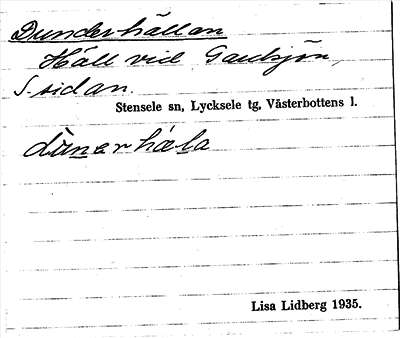 Dunderhällan
Häll vid Gausjön,
S. sidan.
Stensele sn, Lycksele tg, Västerbottens l.
dùnerhæla
Lisa Lidberg 1935.